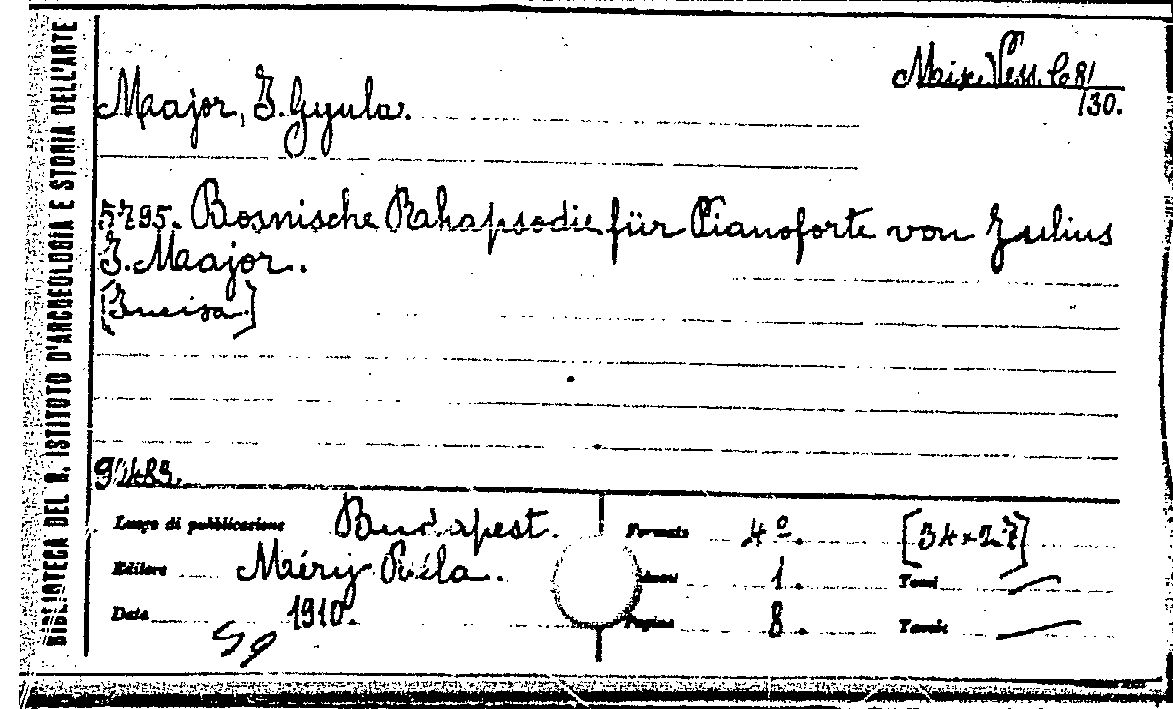 BIBLIOTECA DEL R. ISTITUTO D'ARCHEOLOGIA E STORIA DELL'ARTE
Maajor, J. Gyula.
5795. Bosnische Rahapsodie für Pianoforte von Julius
J. Maajor.
[Incisa]
Luogo di pubblicazione Budapest.
Formato 4º. [34×27]
Editore Méry Béla.
1.
Tomi
Data 1910.
Pagine 8.
Tavole